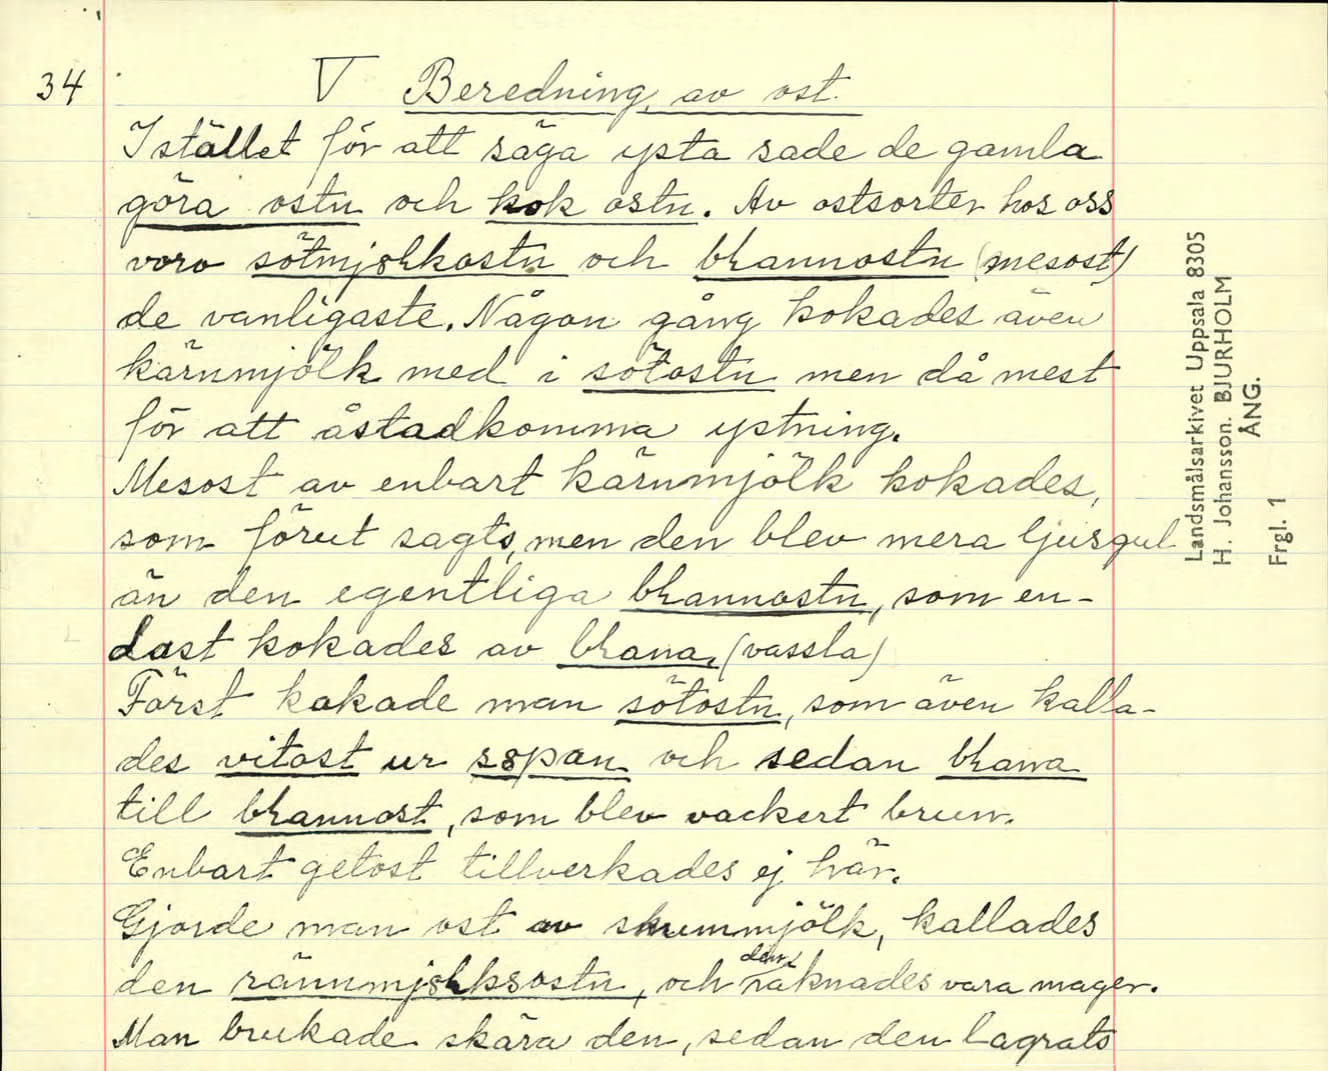 34
V Beredning av ost.
Istället för att säga ysta sade de gamla
göra ostn och kok ostn. Av ostsorter hos oss
voro sötmjɞLkostn och bLannostn (mesost)
de vanligaste. Någon gång kokades även
kärnmjölk med i sötostn men då mest
för att åstadkomma ystning.
Mesost av enbart kärnmjölk kokades,
som förut sagts, men den blev mera ljusgul
än den egentliga bLannostn, som en-
dast kokades av bLana. (vassla)
Först kokade man sötostn, som även kalla-
des vitost ur sɞpan och sedan bLana
till bLannost, som blev vackert brun.
Enbart getost tillverkades ej här.
Gjorde man ost av skummjölk, kallades
den rännmjɞLksostn, och den räknades vara mager.
Man brukade skära den, sedan den lagrats
Landsmålsarkivet Uppsala 8305
H. Johansson. BJURHOLM
ÅNG.
Frgl. 1